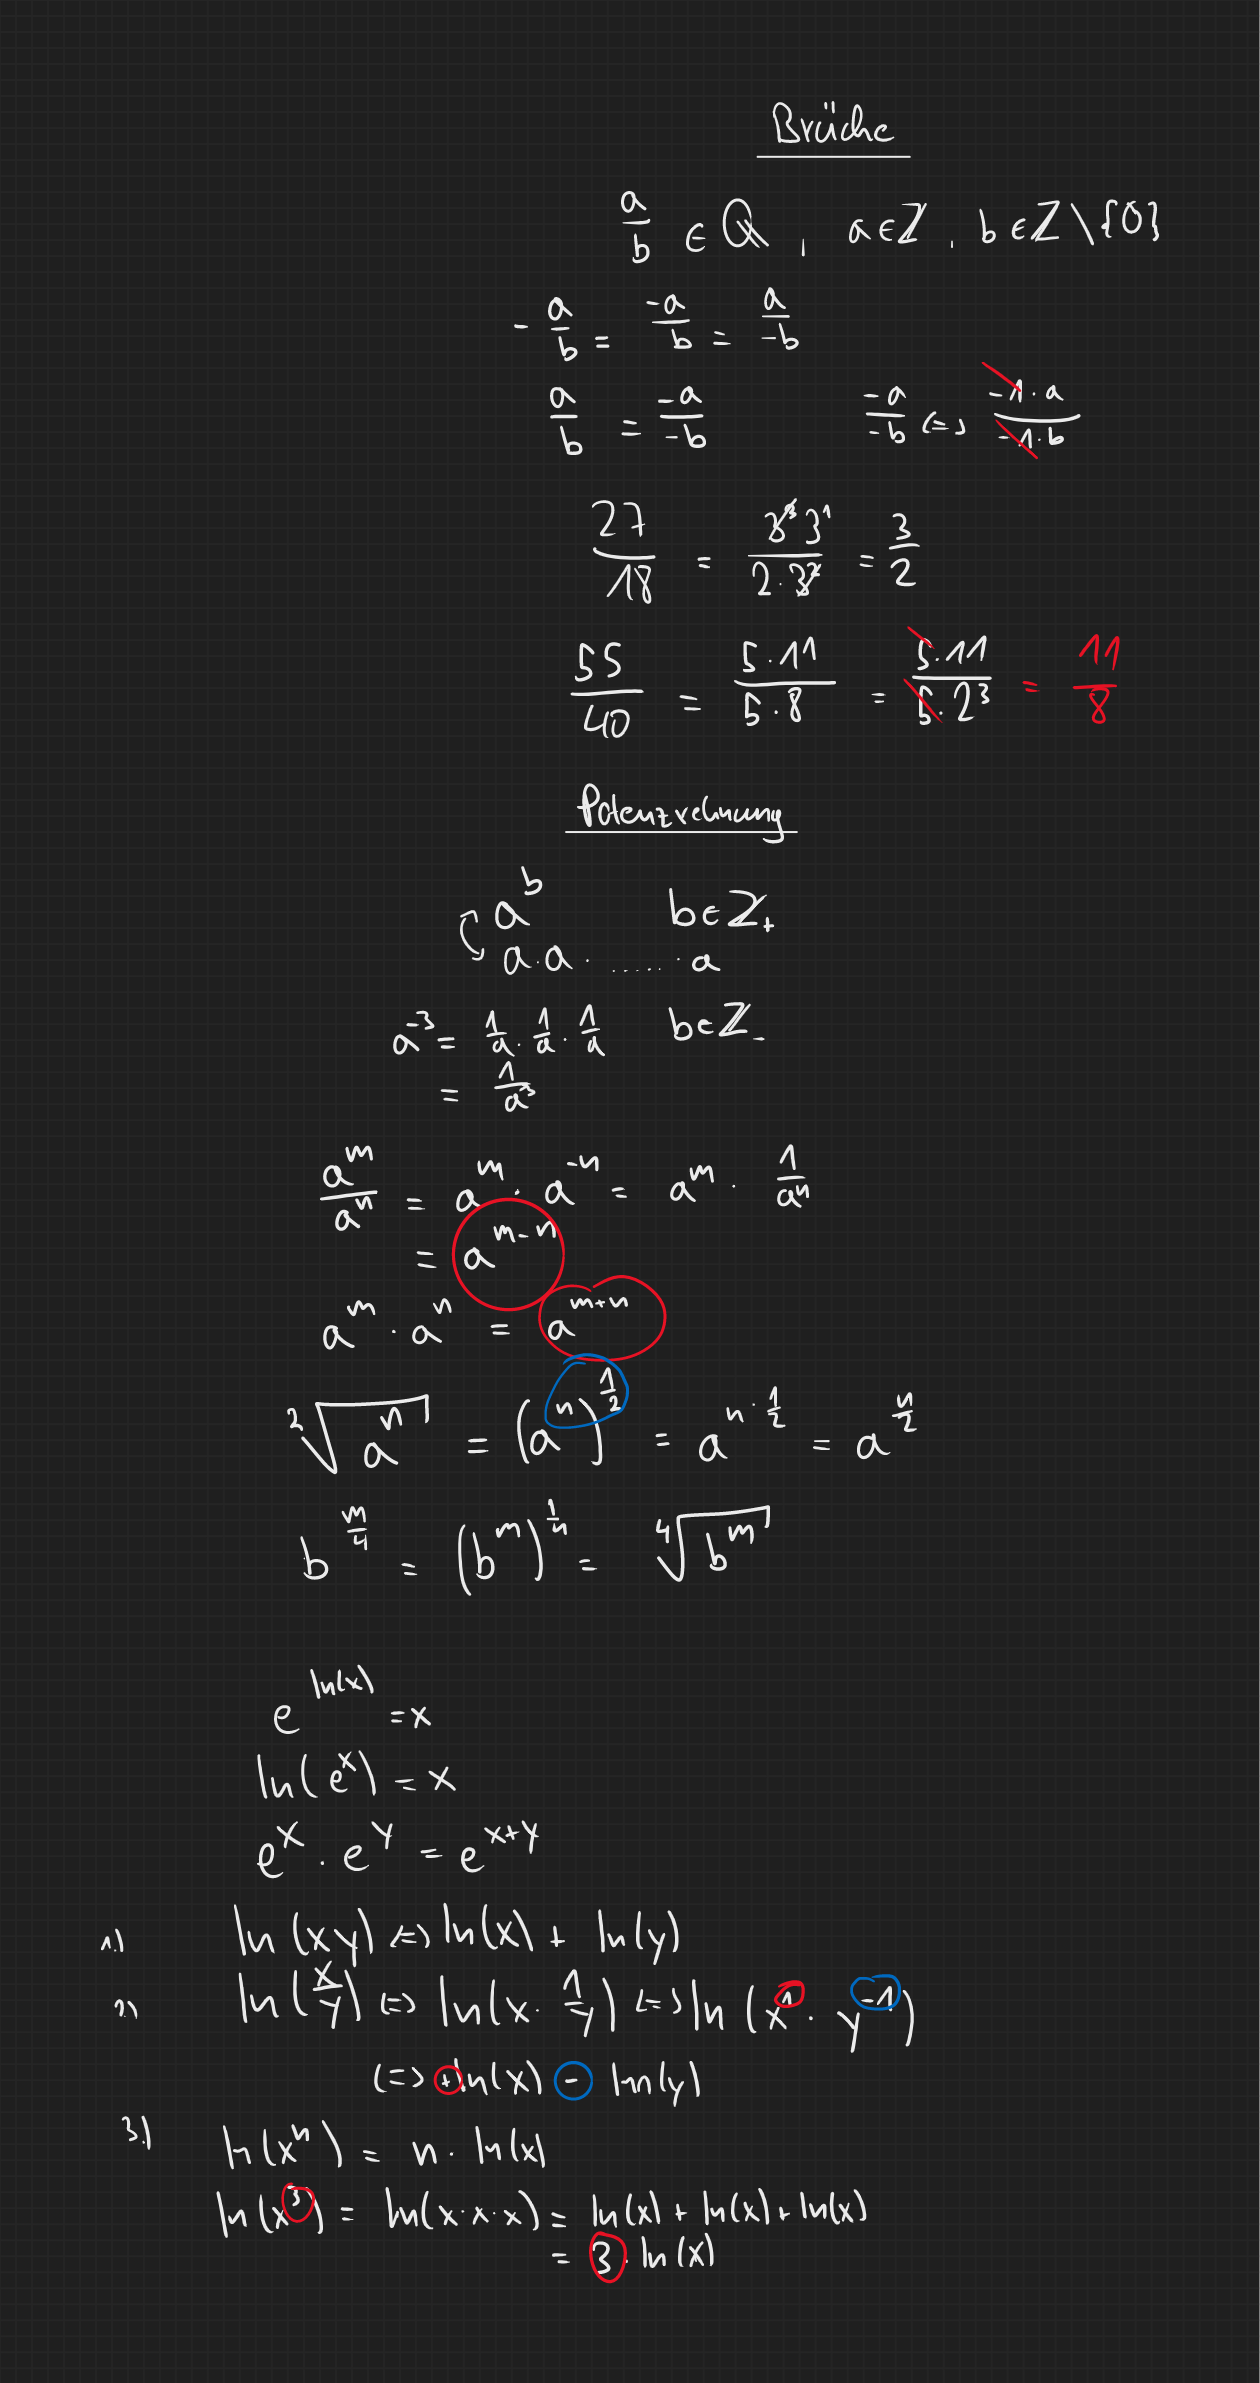 Brüche
a/b ∈ ℚ , a∈ℤ , b∈ℤ\{0}
- a/b = -a/b = a/-b
a/b = -a/-b   -a/-b <=> -1·a/-1·b
27/18 = 3^3 3^1/2·3^2 = 3/2
55/40 = 5·11/5·8 = 5·11/5·2^3 = 11/8
Potenzrechnung
a^b   b∈ℤ+
a·a· ...... ·a
a^-3 = 1/a · 1/a · 1/a   b∈ℤ-
= 1/a^3
a^m/a^n = a^m · a^-n = a^m · 1/a^n
= a^m-n
a^m · a^n = a^m+n
²√a^n = (a^n)^1/2 = a^n·1/2 = a^n/2
b^m/4 = (b^m)^1/4 = ⁴√b^m
e^ln(x) = x
ln(e^x) = x
e^x · e^y = e^x+y
1.) ln(xy) <=> ln(x) + ln(y)
2.) ln(x/y) <=> ln(x · 1/y) <=> ln(x^1 · y^-1)
<=> +ln(x) - ln(y)
3.) ln(x^n) = n · ln(x)
ln(x^3) = ln(x·x·x) = ln(x) + ln(x) + ln(x)
= 3 · ln(x)